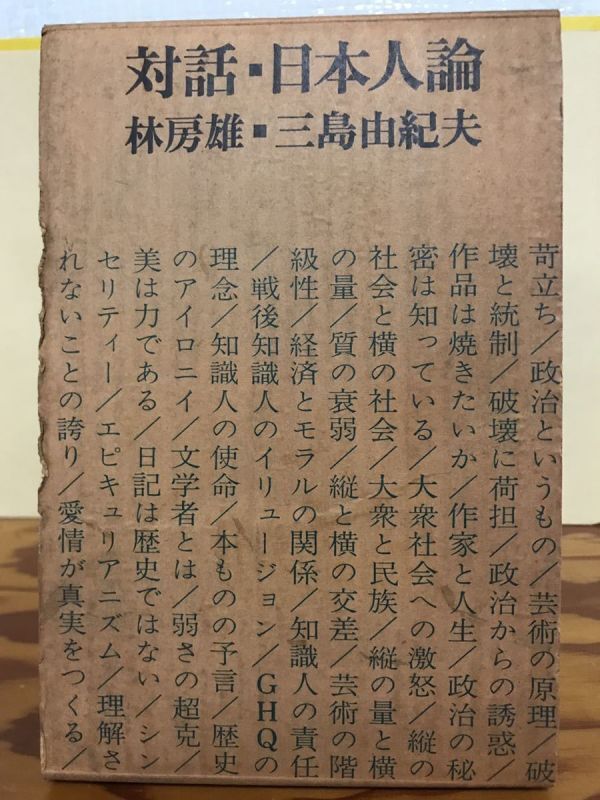 対話■日本人論
林房雄■三島由紀夫
苛立ち／政治というもの／芸術の原理／破
壊と統制／破壊に荷担／政治からの誘惑／
作品は焼きたいか／作家と人生／政治の秘
密は知っている／大衆社会への激怒／縦の
社会と横の社会／大衆と民族／縦の量と横
の量／質の衰弱／縦と横の交差／芸術の階
級性／経済とモラルの関係／知識人の責任
／戦後知識人のイリュージョン／GHQの
理念／知識人の使命／本ものの予言／歴史
のアイロニイ／文学者とは／弱さの超克／
美は力である／日記は歴史ではない／シン
セリティー／エピキュリアニズム／理解さ
れないことの誇り／愛情が真実をつくる／